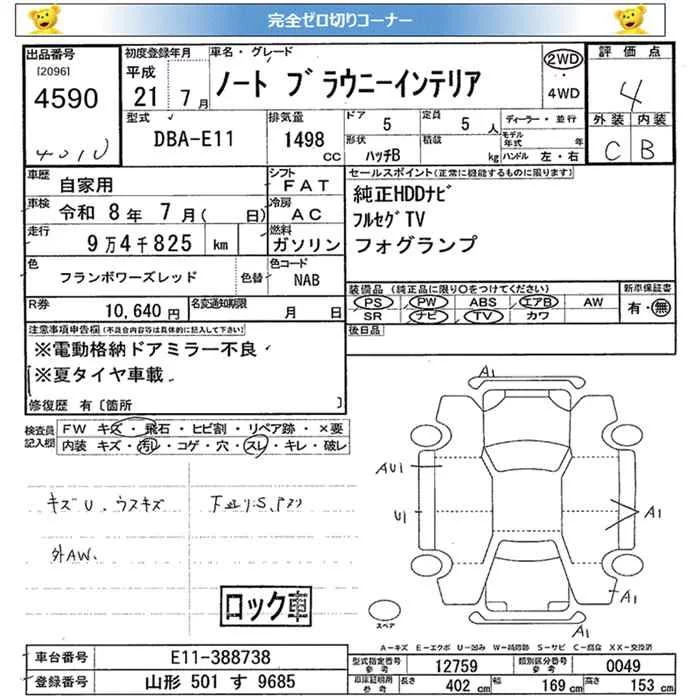 完全ゼロ切りコーナー
出品番号
[2096]
4590
4010
初度登録年月
平成
21 7月
車名・グレード
ノート ブラウニーインテリア
2WD
・
4WD
評価点
4
外装 内装
C B
型式
DBA-E11
排気量
1498
CC
ドア
5
定員
5 人
形状
ハッチB
積載
kg
ディーラー・並行
モデル年式 年
ハンドル 左・右
車歴
自家用
シフト
FAT
車検
令和 8年 7月( 日)
冷房
AC
走行
9万4千825 km
燃料
ガソリン
色
フランボワーズレッド
色替
色コード
NAB
セールスポイント(正常に機能するものに限ります)
純正HDDナビ
フルセグTV
フォグランプ
R券
10,640円
名変通知期限
月 日
装備品 (純正品に限り○をつけてください)
PS PW ABS エアB AW
SR ナビ TV カワ
新車保証書
有・無
後日品
注意事項申告欄(不具合内容等は具体的に記入して下さい)
※電動格納ドアミラー不良
※夏タイヤ車載
修復歴 有〔箇所 〕
検査員記入欄
FW キズ・飛石・ヒビ割・リペア跡・×要
内装 キズ・汚レ・コゲ・穴・スレ・キレ・破レ
キズU、ウスキズ
外AW.
ロック車
A1
AU1
U1
A1
A1
A1
スペア
A-キズ E-エクボ U-凹み W-補修跡 S-サビ C-腐食 XX-交換済
車台番号
E11-388738
登録番号
山形 501 す 9685
型式指定番号
参考
12759
類別区分番号
参考
0049
車庫証明用
参考
長さ
402 cm
幅
169 cm
高さ
153 cm